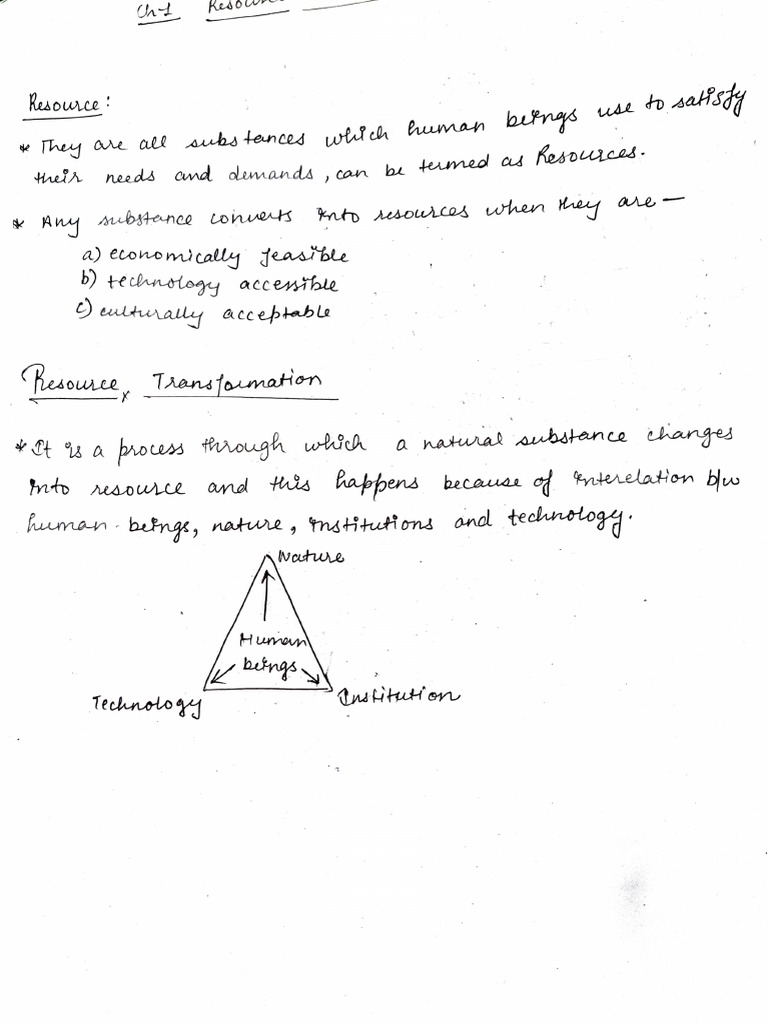 Ch-1 Resource
Resource:
* They are all substances which human beings use to satisfy
their needs and demands, can be termed as Resources.
* Any substance converts into resources when they are —
a) economically feasible
b) technology accessible
c) culturally acceptable
Resource Transformation
* It is a process through which a natural substance changes
into resource and this happens because of interelation b/w
human beings, nature, institutions and technology.
Nature
Human
beings
Technology
Institution